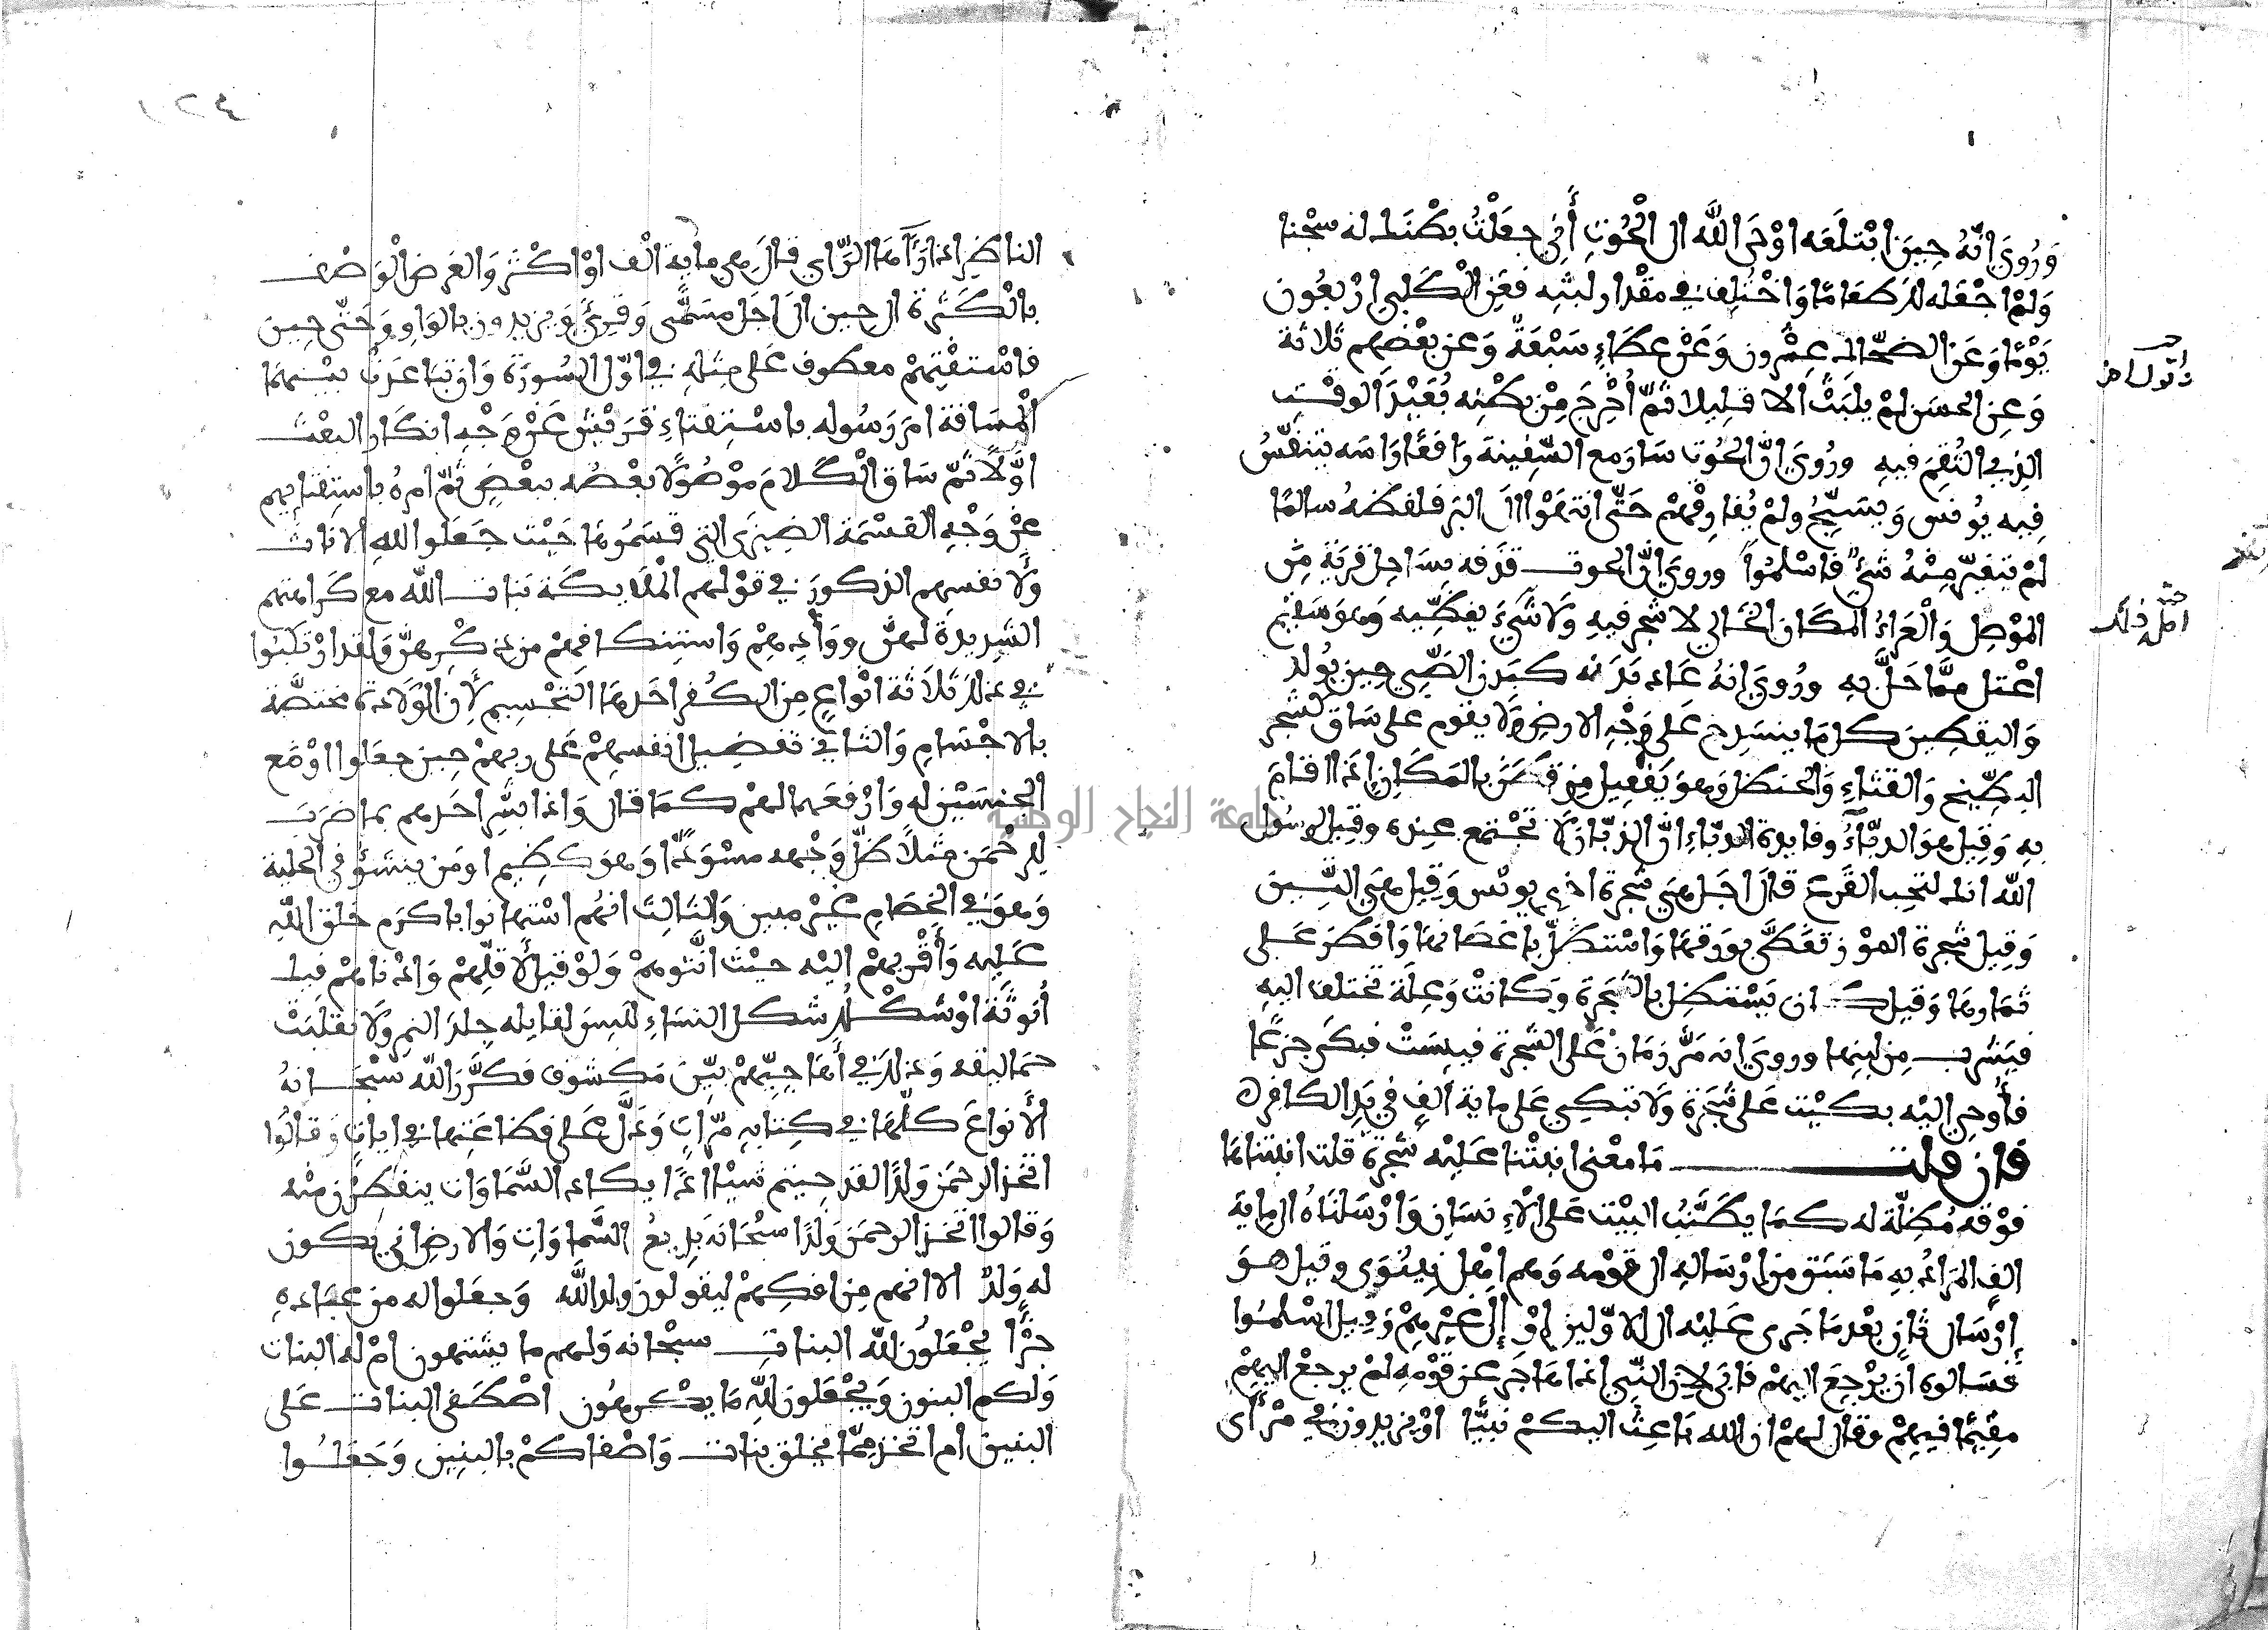 وَرُوِيَ انّهُ حِينَ ابْتلَعَه اوْحَى اللّه الى الْحُوتِ أَنِّي جعَلْتُ بطْنَك له سِجْنا
وَلمْ اجْعَله لك طعَامًا وَاخْتُلِفَ في مقْدار لبثِه فعَنِ الْكَلبي ارْبعُون
يَوْمًا وَعَنِ الضحّاك عِشْرون وَعَنْ عطَاءٍ سَبْعَةٌ وَعن بعْضِهم ثلاثة
وَعِن الحسَن لمْ يلبَثْ الا قليلا ثمّ أُخْرِجَ مِنْ بطْنِه بُعَيْدَ الوقْتِ
الذِي التُقِمَ فيهِ ورُوِيَ انّ الحُوت سَارَ مع السّفِينة رافعًا رَاسَه يتنفّسُ
فِيه يُونس وَيسَبِّحُ ولمْ يُفارِقْهمْ حَتّى انتهَوْا الى البَرِّ فلفظه سالمًا
لمْ يتغيّر مِنْهُ شَيْءٌ فاسْلمُوا وروِيَ انّ الحوت قذفه بِسَاحِل قريَة مِن
الموْصِل وَالْعَرَاءُ المكَان الخالي لا شجر فيهِ وَلا شَيْءَ يغطّيه وَهوَ سَقِيم
اعْتل ممّا حَلَّ بِهِ ورُوِيَ انهُ عَاد بدَنه كبَدن الصَّبي حِين يُولد
وَاليقطِين كل مَا ينسَدِح عَلى وَجْهِ الارضِ وَلا يقوم على سَاق كشجر
البطّيخ وَالقثاءِ وَالحنظل وَهوَ يَفْعِيل مِن قطَنَ بالمكَانِ اذا اقامَ
بِهِ وَقِيل هوَ الدبّاءُ وفايدة الدبّاءِ انّ الذبّان لَا تجْتمع عِنده وقِيل لرسُول
اللّه انك لتحِب القَرعَ قالَ اجَل هيَ شجرة اخي يونس وَقِيل هيَ التّين
وَقِيل شجرة الموْز تغَطّى بورَقهَا وَاسْتظلّ باغصَانهَا وَافطَرَ عَلى
ثمارهَا وَقيل كان يَسْتظِل بالشَّجَرة وَكانتْ وَعِلَة تختلف اليهِ
فيَشرب مِن لبنِها وروِيَ انه مَرَّ زمَانٌ عَلى الشّجرَة فيبِسَتْ فبكَى جزعًا
فأُوحِيَ اليْه بكَيْت عَلى شَجَرة وَلا تبكِي عَلى ماية أَلفٍ في يَدِ الكافِر
فان قلت مَا مَعْنى انبتْنا عَليْه شَجرَة قلت انبتناهَا
فوْقه مُظِلّة له كمَا يطَنَّبُ البيْت عَلى الْاِنسَانِ وَارْسَلناهُ الى ماية
الفٍ المرَادُ بهِ مَا سَبَق مِن ارْسَالِهِ الى قوْمه وَهم اهْل نِينَوَى وقيل هوَ
إِرْسَال ثانٍ بعْد مَا جَرى عَليْه الى الاوّلين اوْ إِلى غَيْرهِمْ وَقيل اسْلمُوا
فسَالوه ان يرْجعَ اليهمْ فابَى لِان النّبِي اذا هاجَرَ عن قوْمِه لمْ يرجعْ اليهمْ
مقِيمًا فيهمْ وقال لهمْ ان الله بَاعِث اليكمْ نبيًّا اوْ يزيدون في مرْأَى
الناظِر اذا رَآهَا الرّاي قالَ هي ماية الْف اوْ اكْثر وَالغرض الْوَصْف
بالْكَثرة الى حين الى اجَل مسَمًّى وَقرِئ وَيزيدون بالوَاو وَحَتّى حِين
فاسْتفْتِهمْ معطوف عَلى مِثله في اوّل السُورَة وَان تباعَدَتْ بيْنهما
الْمسَافة امَرَ رَسُوله باسْتِفتاءِ قرَيْش عَنْ وَجْهِ انكَار البعْث
اوّلًا ثمّ سَاق الْكلامَ موْصُولًا بعْضُه ببعْضٍ ثمّ امرهُ باستِفتايهم
عنْ وَجْهِ القسْمَة الضِيزَى التي قسَمُوهَا حَيْث جَعَلوا للهِ الاناث
وَلأنفسِهم الذكورَ في قوْلهم الْمَلايكَة بَنات اللّه مع كَراهتهم
الشدِيدَة لهنّ ووَأْدِهِمْ وَاستِنكافهمْ من ذكْرِهنّ وَلقد ارْتكَبُوا
في ذلك ثلَاثة انْواعٍ مِن الكُفر احَدهَا التّجْسِيم لأَن الوَلَادة مختصَّة
بالاجْسَامِ وَالثاني تفضِيل انفسِهِمْ عَلى ربهمْ حِين جعَلوا اوْضَع
الجنسَيْن له وَارْفعَهما لهمْ كمَا قال وَاذا بشّر احَدهم بما ضرَبَ
لِلرحْمَن مثلًا ظلّ وَجْهه مسْوَدًّا وَهوَ كظِيم اومَن ينشؤُ في الحلية
وَهوَ في الخِصَامِ غيْر مبين وَالثالِث انهُم اسْتهانوا باكرَم خلق اللّهِ
عَليه وَأَقْربهمْ اليْه حيْث انّثوهمْ وَلوْ قيل لأَقلّهمْ وَادْناهمْ فيك
أُنوثَة اوْ شكْلك شكل النسَاءِ للبِسَ لقايله جِلدَ النمِر وَلا نقلَبَتْ
حمَاليقه وَذلك في أَهاجِيهمْ بيّن مَكشوف فكَرَّرَ اللّه سُبْحَانهُ
الأَنواعَ كلّهَا في كِتابِه مرّاتٍ وَدَلَّ عَلى فظاعَتِها في اياتٍ وَقالُوا
اتخذ الرحمَن وَلدًا لقد جِيتم شيْئا ادًّا يكَاد السَّمَاوَات ينفطِرْن مِنْه
وَقالوا اتخذ الرحمَن وَلدًا سبُحَانه بَدِيعُ السَّماوَاتِ وَالارضِ انى يكون
له وَلدٌ الا انهم مِن افكِهِمْ ليَقولون ولد اللّه وَجعَلوا له من عِبَادهِ
جزْءًا يجْعَلُون للّه البنات سبْحانه وَلهم ما يشتهون امْ له البنات
وَلكم البنون وَيجْعَلون للّهِ مَا يكْرهُون اصْطَفى البنات عَلى
البنين ام اتخذ ممّا يخلق بنات وَاصْفاكمْ بالبنِين وَجَعَلُوا
جامعة النجاح الوطنية